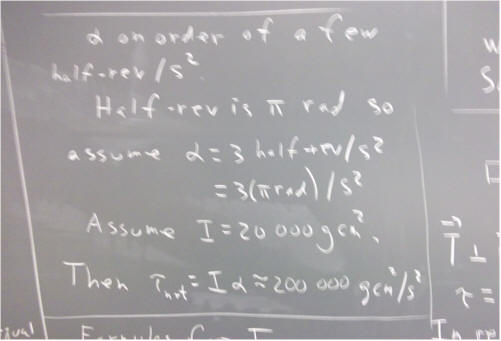 α on order of a few
half-rev/s².
Half-rev is π rad so
assume α = 3 half-rev/s²
= 3(π rad)/s²
Assume I = 20 000 g cm².
Then τnet = Iα ≈ 200 000 g cm²/s²
Formulas for I
T⃗ ⊥
τ =
In